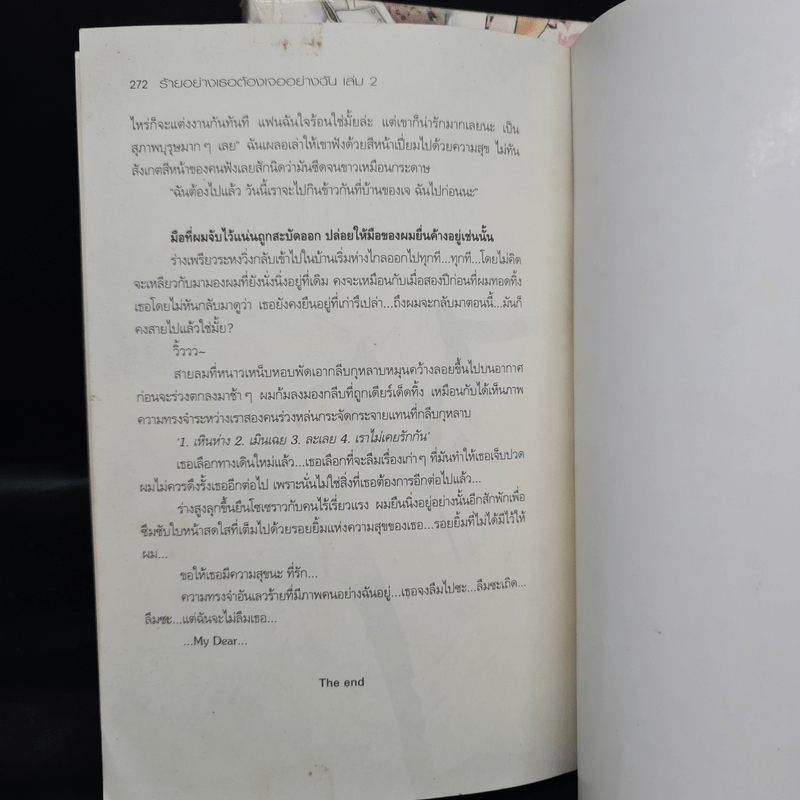 272 ร้ายอย่างเธอต้องเจออย่างฉัน เล่ม 2
ไหร่ก็จะแต่งงานกันทันที แฟนฉันใจร้อนใช่มั้ยล่ะ แต่เขาก็น่ารักมากเลยนะ เป็น
สุภาพบุรุษมากๆ เลย" ฉันเผลอเล่าให้เขาฟังด้วยสีหน้าเปี่ยมไปด้วยความสุข ไม่ทัน
สังเกตสีหน้าของคนฟังเลยสักนิดว่ามันซีดจนขาวเหมือนกระดาษ
"ฉันต้องไปแล้ว วันนี้เราจะไปกินข้าวกันที่บ้านของเจ ฉันไปก่อนนะ"
มือที่ผมจับไว้แน่นถูกสะบัดออก ปล่อยให้มือของผมยื่นค้างอยู่เช่นนั้น
ร่างเพรียวระหงวิ่งกลับเข้าไปในบ้านเริ่มห่างไกลออกไปทุกที...ทุกที...โดยไม่คิด
จะเหลียวกลับมามองผมที่ยังนั่งนิ่งอยู่ที่เดิม คงจะเหมือนกับเมื่อสองปีก่อนที่ผมทอดทิ้ง
เธอโดยไม่หันกลับมาดูว่า เธอยังคงยืนอยู่ที่เก่ารึเปล่า...ถึงผมจะกลับมาตอนนี้...มันก็
คงสายไปแล้วใช่มั้ย?
วิ้ววว~
สายลมที่หนาวเหน็บหอบพัดเอากลีบกุหลาบหมุนคว้างลอยขึ้นไปบนอากาศ
ก่อนจะร่วงตกลงมาช้าๆ ผมก้มลงมองกลีบที่ถูกเดียร์เด็ดทิ้ง เหมือนกับได้เห็นภาพ
ความทรงจำระหว่างเราสองคนร่วงหล่นกระจัดกระจายแทนที่กลีบกุหลาบ
'1. เหินห่าง 2. เมินเฉย 3. ละเลย 4. เราไม่เคยรักกัน'
เธอเลือกทางเดินใหม่แล้ว...เธอเลือกที่จะลืมเรื่องเก่าๆ ที่มันทำให้เธอเจ็บปวด
ผมไม่ควรดึงรั้งเธออีกต่อไป เพราะนั่นไม่ใช่สิ่งที่เธอต้องการอีกต่อไปแล้ว...
ร่างสูงลุกขึ้นยืนโซเซราวกับคนไร้เรี่ยวแรง ผมยืนนิ่งอยู่อย่างนั้นอีกสักพักเพื่อ
ซึมซับใบหน้าสดใสที่เต็มไปด้วยรอยยิ้มแห่งความสุขของเธอ...รอยยิ้มที่ไม่ได้มีไว้ให้
ผม...
ขอให้เธอมีความสุขนะ ที่รัก...
ความทรงจำอันเลวร้ายที่มีภาพคนอย่างฉันอยู่...เธอจงลืมไปซะ...ลืมซะเถิด...
ลืมซะ...แต่ฉันจะไม่ลืมเธอ...
...My Dear...
The end